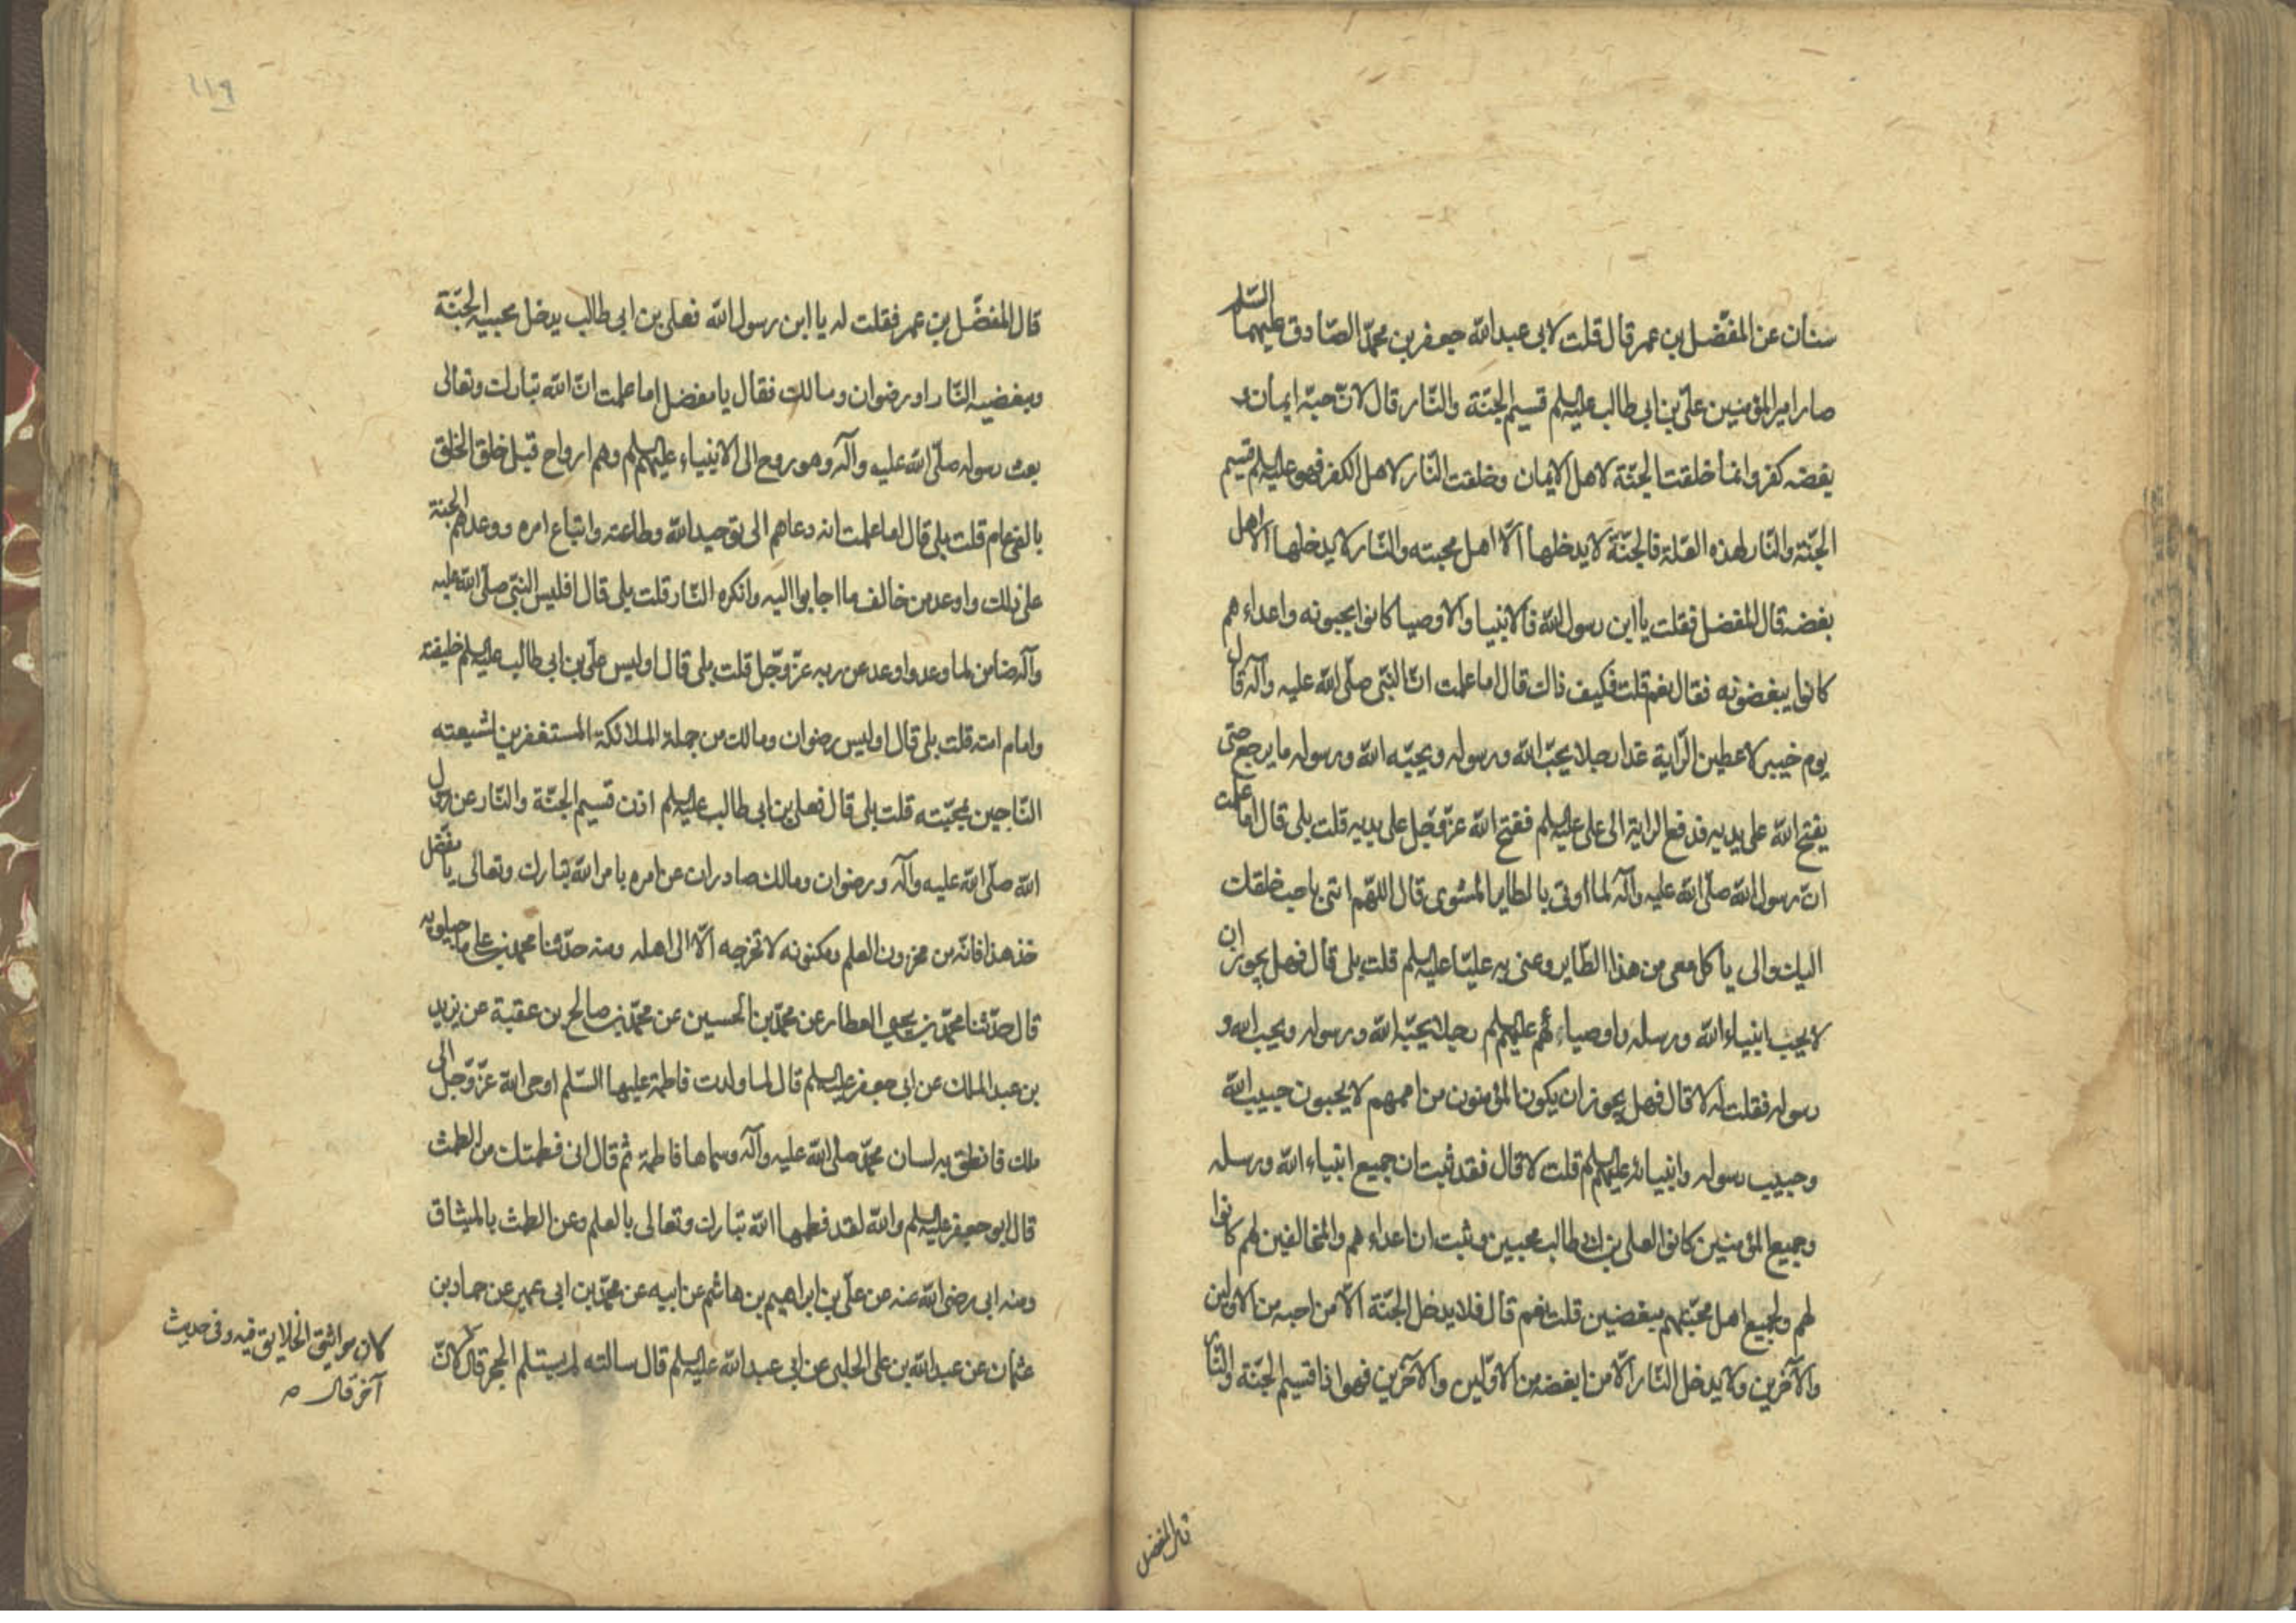 سنان عن المفضل بن عمر قال قلت لابی عبدالله جعفر بن محمد الصادق علیهما السلم
صار امیر المؤمنین علی بن ابی طالب علیه السلم قسیم الجنة والنار قال لانّ حبّه ایمان و
بغضه کفر وانما خلقت الجنّة لاهل الایمان وخلقت النّار لاهل الکفر فهو علیه السلم قسیم
الجنّة والنّار لهذه العلّة فالجنّة لا یدخلها الّا اهل محبته والنّار لا یدخلها الّا اهل
بغضه قال المفضل فقلت یا ابن رسول الله فالانبیا والاوصیا کانوا یحبونه واعداءهم
کانوا یبغضونه فقال نعم قلت فکیف ذلک قال اما علمت انّ النبّی صلّی الله علیه وآله قال
یوم خیبر لاعطین الرّایة غدا رجلا یحبّ الله ورسوله ویحبّه الله ورسوله ما یرجع حتی
یفتح الله علی یدیه فدفع الرایة الی علی علیه السلم ففتح الله عزّوجّل علی یدیه قلت بلی قال اما علمت
انّ رسول الله صلّی الله علیه وآله لما اوتی بالطایر المشوی قال اللهّم ائتنی باحب خلقک
الیک والی یاکل معی من هذا الطّایر وعنی به علیّا علیه السلم قلت بلی قال فهل یجوز ان
لا یحب انبیاء الله ورسله واوصیاءهم علیهم السلم رجلا یحبّه الله ورسوله ویحب الله و
رسوله فقلت له لا قال فهل یجوز ان یکون المؤمنون من اممهم لا یحبون حبیب الله
وحبیب رسوله وانبیائه علیهم السلم قلت لا قال فقد ثبت ان جمیع انبیاء الله ورسله
وجمیع المؤمنین کانوا لعلی بن ابی طالب محبین وثبت ان اعداءهم والمخالفین لهم کانوا
لهم ولجمیع اهل محبّتهم مبغضین قلت نعم قال فلا یدخل الجنّة الّا من احبه من الاولین
والآخرین ولا یدخل النّار الّا من ابغضه من الاوّلین والآخرین فهو اذا قسیم الجنّة والنّار
قال المفضل
۱۱۹
قال المفضّل بن عمر فقلت له یا ابن رسول الله فعلی بن ابی طالب یدخل محبیه الجنّة
ومبغضیه النّار او رضوان ومالک فقال یا مفضل اما علمت انّ الله تبارک وتعالی
بعث رسوله صلّی الله علیه وآله وهو روح الی الانبیاء علیهم السلم وهم ارواح قبل خلق الخلق
بالفی عام قلت بلی قال اما علمت انه دعاهم الی توحید الله وطاعته واتباع امره ووعدهم الجنة
علی ذلک واوعد من خالف ما اجابوا الیه وانکره النّار قلت بلی قال افلیس النبّی صلّی الله علیه
وآله ضامن لما وعد واوعد عن ربه عزّوجّل قلت بلی قال اولیس علّی بن ابی طالب علیه السلم خلیفته
وامام امته قلت بلی قال اولیس رضوان ومالک من جملة الملائکة المستغفرین لشیعته
النّاجین بمحبّته قلت بلی قال فعلی بن ابی طالب علیه السلم اذن قسیم الجنّة والنّار عن رسول
الله صلّی الله علیه وآله ورضوان ومالک صادران عن امره بامر الله تبارک وتعالی یا مفضّل
خذ هذا فانّه من مخزون العلم ومکنونه لا تخرجه الّا الی اهله ومنه حدّثنا محمد بن علی ماجیلویه
قال حدّثنا محمّد بن یحیی العطار عن محمّد بن الحسین عن محمّد بن صالح بن عقبة عن یزید
بن عبد الملک عن ابی جعفر علیه السلم قال لما ولدت فاطمة علیها السّلم اوحی الله عزّوجّل الی
ملک فانطق به لسان محمّد صلّی الله علیه وآله وسماها فاطمة ثم قال انی فطمتک من الطمث
قال ابو جعفر علیه السلم والله لقد فطمها الله تبارک وتعالی بالعلم وعن الطمث بالمیثاق
ومنه ابی رضی الله عنه عن علّی بن ابراهیم بن هاشم عن ابیه عن محمّد بن ابی عمیر عن حماد بن
عثمان عن عبدالله بن علی الحلبی عن ابی عبدالله علیه السلم قال سالته لم یستلم الحجر قال لانّ
کان مواثیق الخلایق فیه وفی حدیث
آخر قال